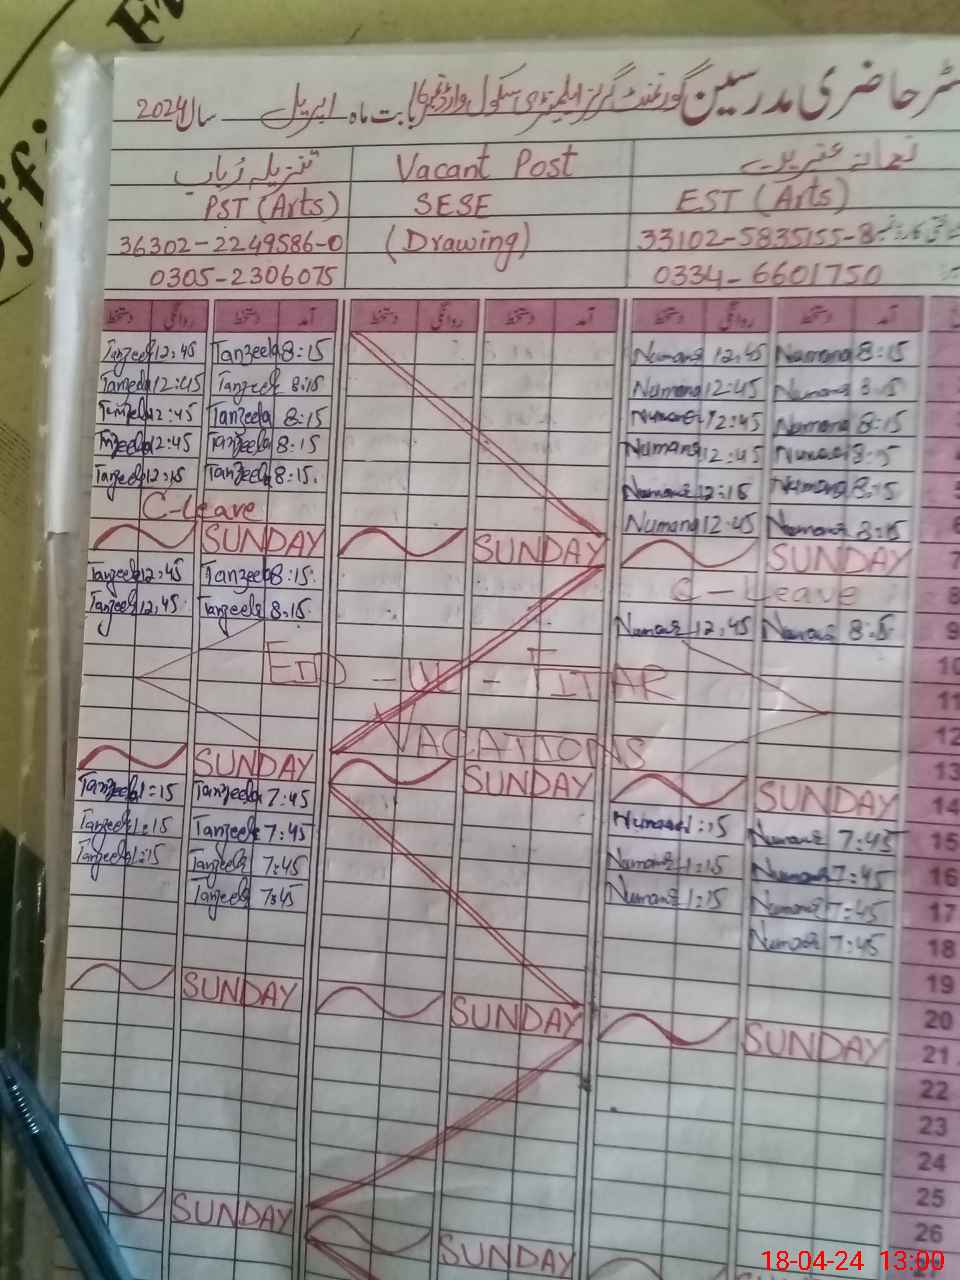 حاضری مدرسین گورنمنٹ گرلز ایلیمنٹری سکول بابت ماہ اپریل سال 2024
Vacant Post
PST (Arts)
SESE
EST (Arts)
36302-2249586-0
(Drawing)
33102-5835155-8
0305-2306075
0334-6601750
دستخط روانگی دستخط آمد دستخط روانگی دستخط آمد دستخط روانگی دستخط آمد
Tanzeela 12:45 Tanzeela 8:15 Numana 12:45 Numana 8:15
Tanzeela 12:45 Tanzeela 8:15 Numana 12:45 Numana 8:15
Tanzeela 12:45 Tanzeela 8:15 Numana 12:45 Numana 8:15
Tanzeela 12:45 Tanzeela 8:15 Numana 12:45 Numana 8:15
Tanzeela 12:15 Tanzeela 8:15 Numana 12:15 Numana 8:15
C-Leave Numana 12:45 Numana 8:15 6
SUNDAY SUNDAY SUNDAY 7
Tanzeela 12:45 Tanzeela 8:15 C-Leave 8
Tanzeela 12:45 Tanzeela 8:15 Numana 12:45 Numana 8:15 9
EID-UL-FITAR 10
11
VACATIONS 12
13
SUNDAY SUNDAY SUNDAY 14
Tanzeela 1:15 Tanzeela 7:45 Numana 1:15 Numana 7:45 15
Tanzeela 1:15 Tanzeela 7:45 Numana 1:15 Numana 7:45 16
Tanzeela 1:15 Tanzeela 7:45 Numana 1:15 Numana 7:45 17
Tanzeela 7:45 Numana 7:45 18
19
20
SUNDAY SUNDAY SUNDAY 21
22
23
24
25
26
SUNDAY SUNDAY
18-04-24 13:00